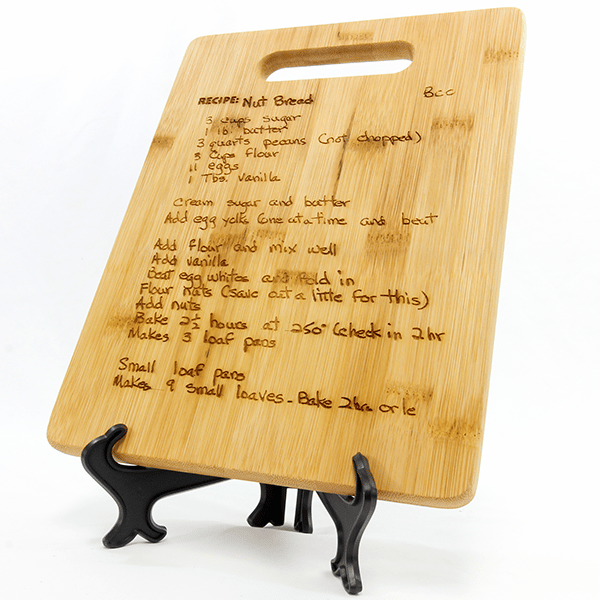 RECIPE: Nut Bread Bcc
3 cups sugar
1 lb. butter
3 quarts pecans (not chopped)
3 Cups flour
11 eggs
1 Tbs. vanilla
Cream sugar and butter
Add egg yolks (one at a time and beat
Add flour and mix well
Add vanilla
Beat egg whites and fold in
Flour nuts (save out a little for this)
Add nuts
Bake 2½ hours at 250° (check in 2 hr
Makes 3 loaf pans
Small loaf pans
Makes 9 small loaves - Bake 2 hrs or le